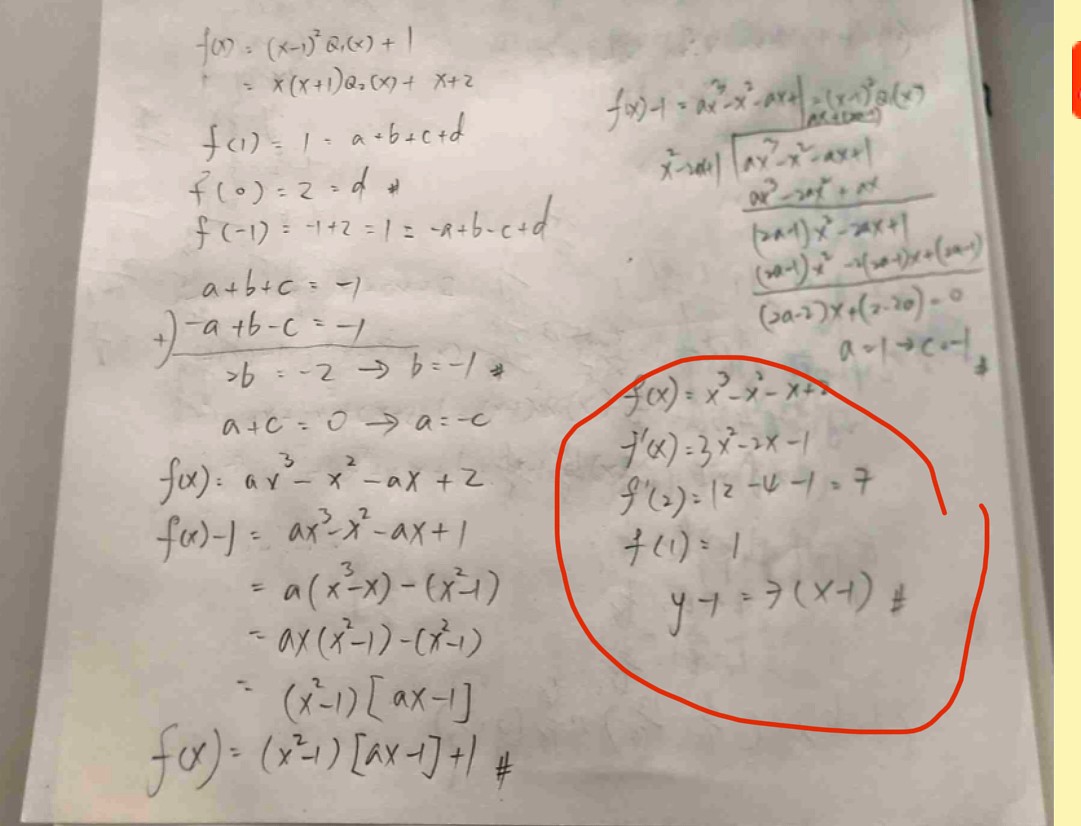 f(x) = (x-1)² Q₁(x) + 1
= x(x+1)Q₂(x) + x+2
f(1) = 1 = a+b+c+d
f(0) = 2 = d #
f(-1) = -1+2 = 1 = -a+b-c+d
a+b+c = -1
+) -a+b-c = -1
2b = -2 → b = -1 #
a+c = 0 → a = -c
f(x) = ax³ - x² - ax + 2
f(x)-1 = ax³-x²-ax+1
= a(x³-x) - (x²-1)
= ax(x²-1) - (x²-1)
= (x²-1)[ax-1]
f(x) = (x²-1)[ax-1]+1 #
f(x)-1 = ax³-x²-ax+1 = (x-1)²Q(x)
ax+(2a-1)
ax³-x²-ax+1
ax³-2ax²+ax
(2a-1)x²-2ax+1
(2a-1)x²-2(2a-1)x+(2a-1)
(2a-2)x+(2-2a) = 0
a=1 → c=-1 #
f(x) = x³-x²-x+2
f'(x) = 3x²-2x-1
f'(2) = 12-4-1 = 7
f(1) = 1
y-1 = 7(x-1) #